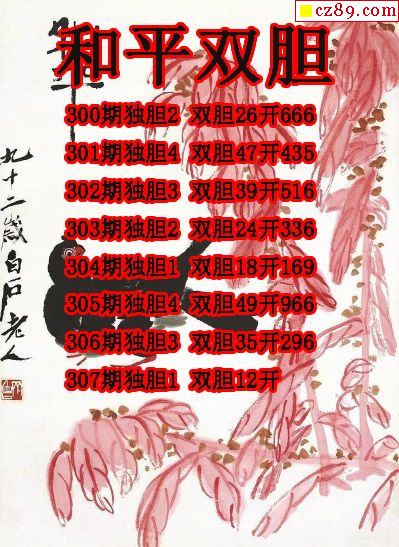 cz89.com
和平双胆
300期独胆2 双胆26开666
301期独胆4 双胆47开435
302期独胆3 双胆39开516
303期独胆2 双胆24开336
304期独胆1 双胆18开169
305期独胆4 双胆49开966
306期独胆3 双胆35开296
307期独胆1 双胆12开
九十二岁白石老人